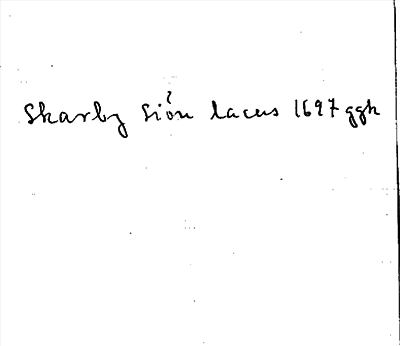 ?
Skarby Siön lacus 1697 ggk